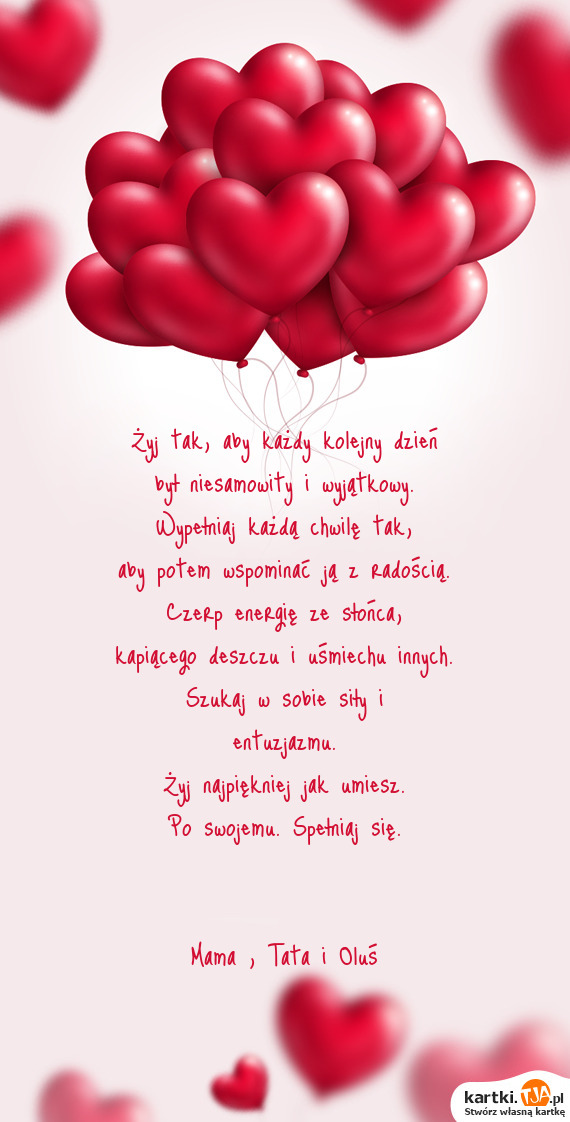 Żyj tak, aby każdy kolejny dzień
był niesamowity i wyjątkowy.
Wypełniaj każdą chwilę tak,
aby potem wspominać ją z radością.
Czerp energię ze słońca,
kapiącego deszczu i uśmiechu innych.
Szukaj w sobie siły i
entuzjazmu.
Żyj najpiękniej jak umiesz.
Po swojemu. Spełniaj się.
Mama , Tata i Oluś
kartki.TJA.pl
Stwórz własną kartkę